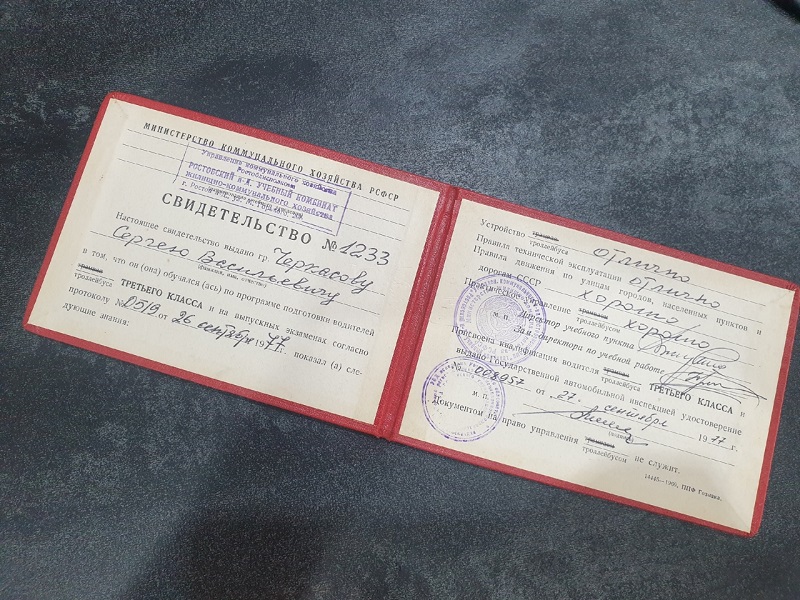 МИНИСТЕРСТВО КОММУНАЛЬНОГО ХОЗЯЙСТВА РСФСР
Управление коммунального хозяйства
Ростоблисполкома
РОСТОВСКИЙ н-Д. УЧЕБНЫЙ КОМБИНАТ
жилищно-коммунального хозяйства
г. Ростов
СВИДЕТЕЛЬСТВО № 1233
Настоящее свидетельство выдано гр. Черкасову
Сергею Васильевичу
(фамилия, имя, отчество)
в том, что он (она) обучался (ась) по программе подготовки водителей
трамвая
троллейбуса ТРЕТЬЕГО КЛАССА и на выпускных экзаменах согласно
протоколу № 0519 от 26 сентября 1977 г. показал (а) сле-
дующие знания:
Устройство трамвая
троллейбуса отлично
Правила технической эксплуатации отлично
Правила движения по улицам городов, населенных пунктов и
дорогам СССР хорошо
Практическое управление трамваем
троллейбусом хорошо
м. п. Директор учебного пункта
Зам. директора по учебной работе
Присвоена квалификация водителя трамвая
троллейбуса ТРЕТЬЕГО КЛАССА и
выдано Государственной автомобильной инспекцией удостоверение
№ 008957 от 27 сентября 1977 г.
м. п.
(подпись)
Документом на право управления трамваем
троллейбусом не служит.